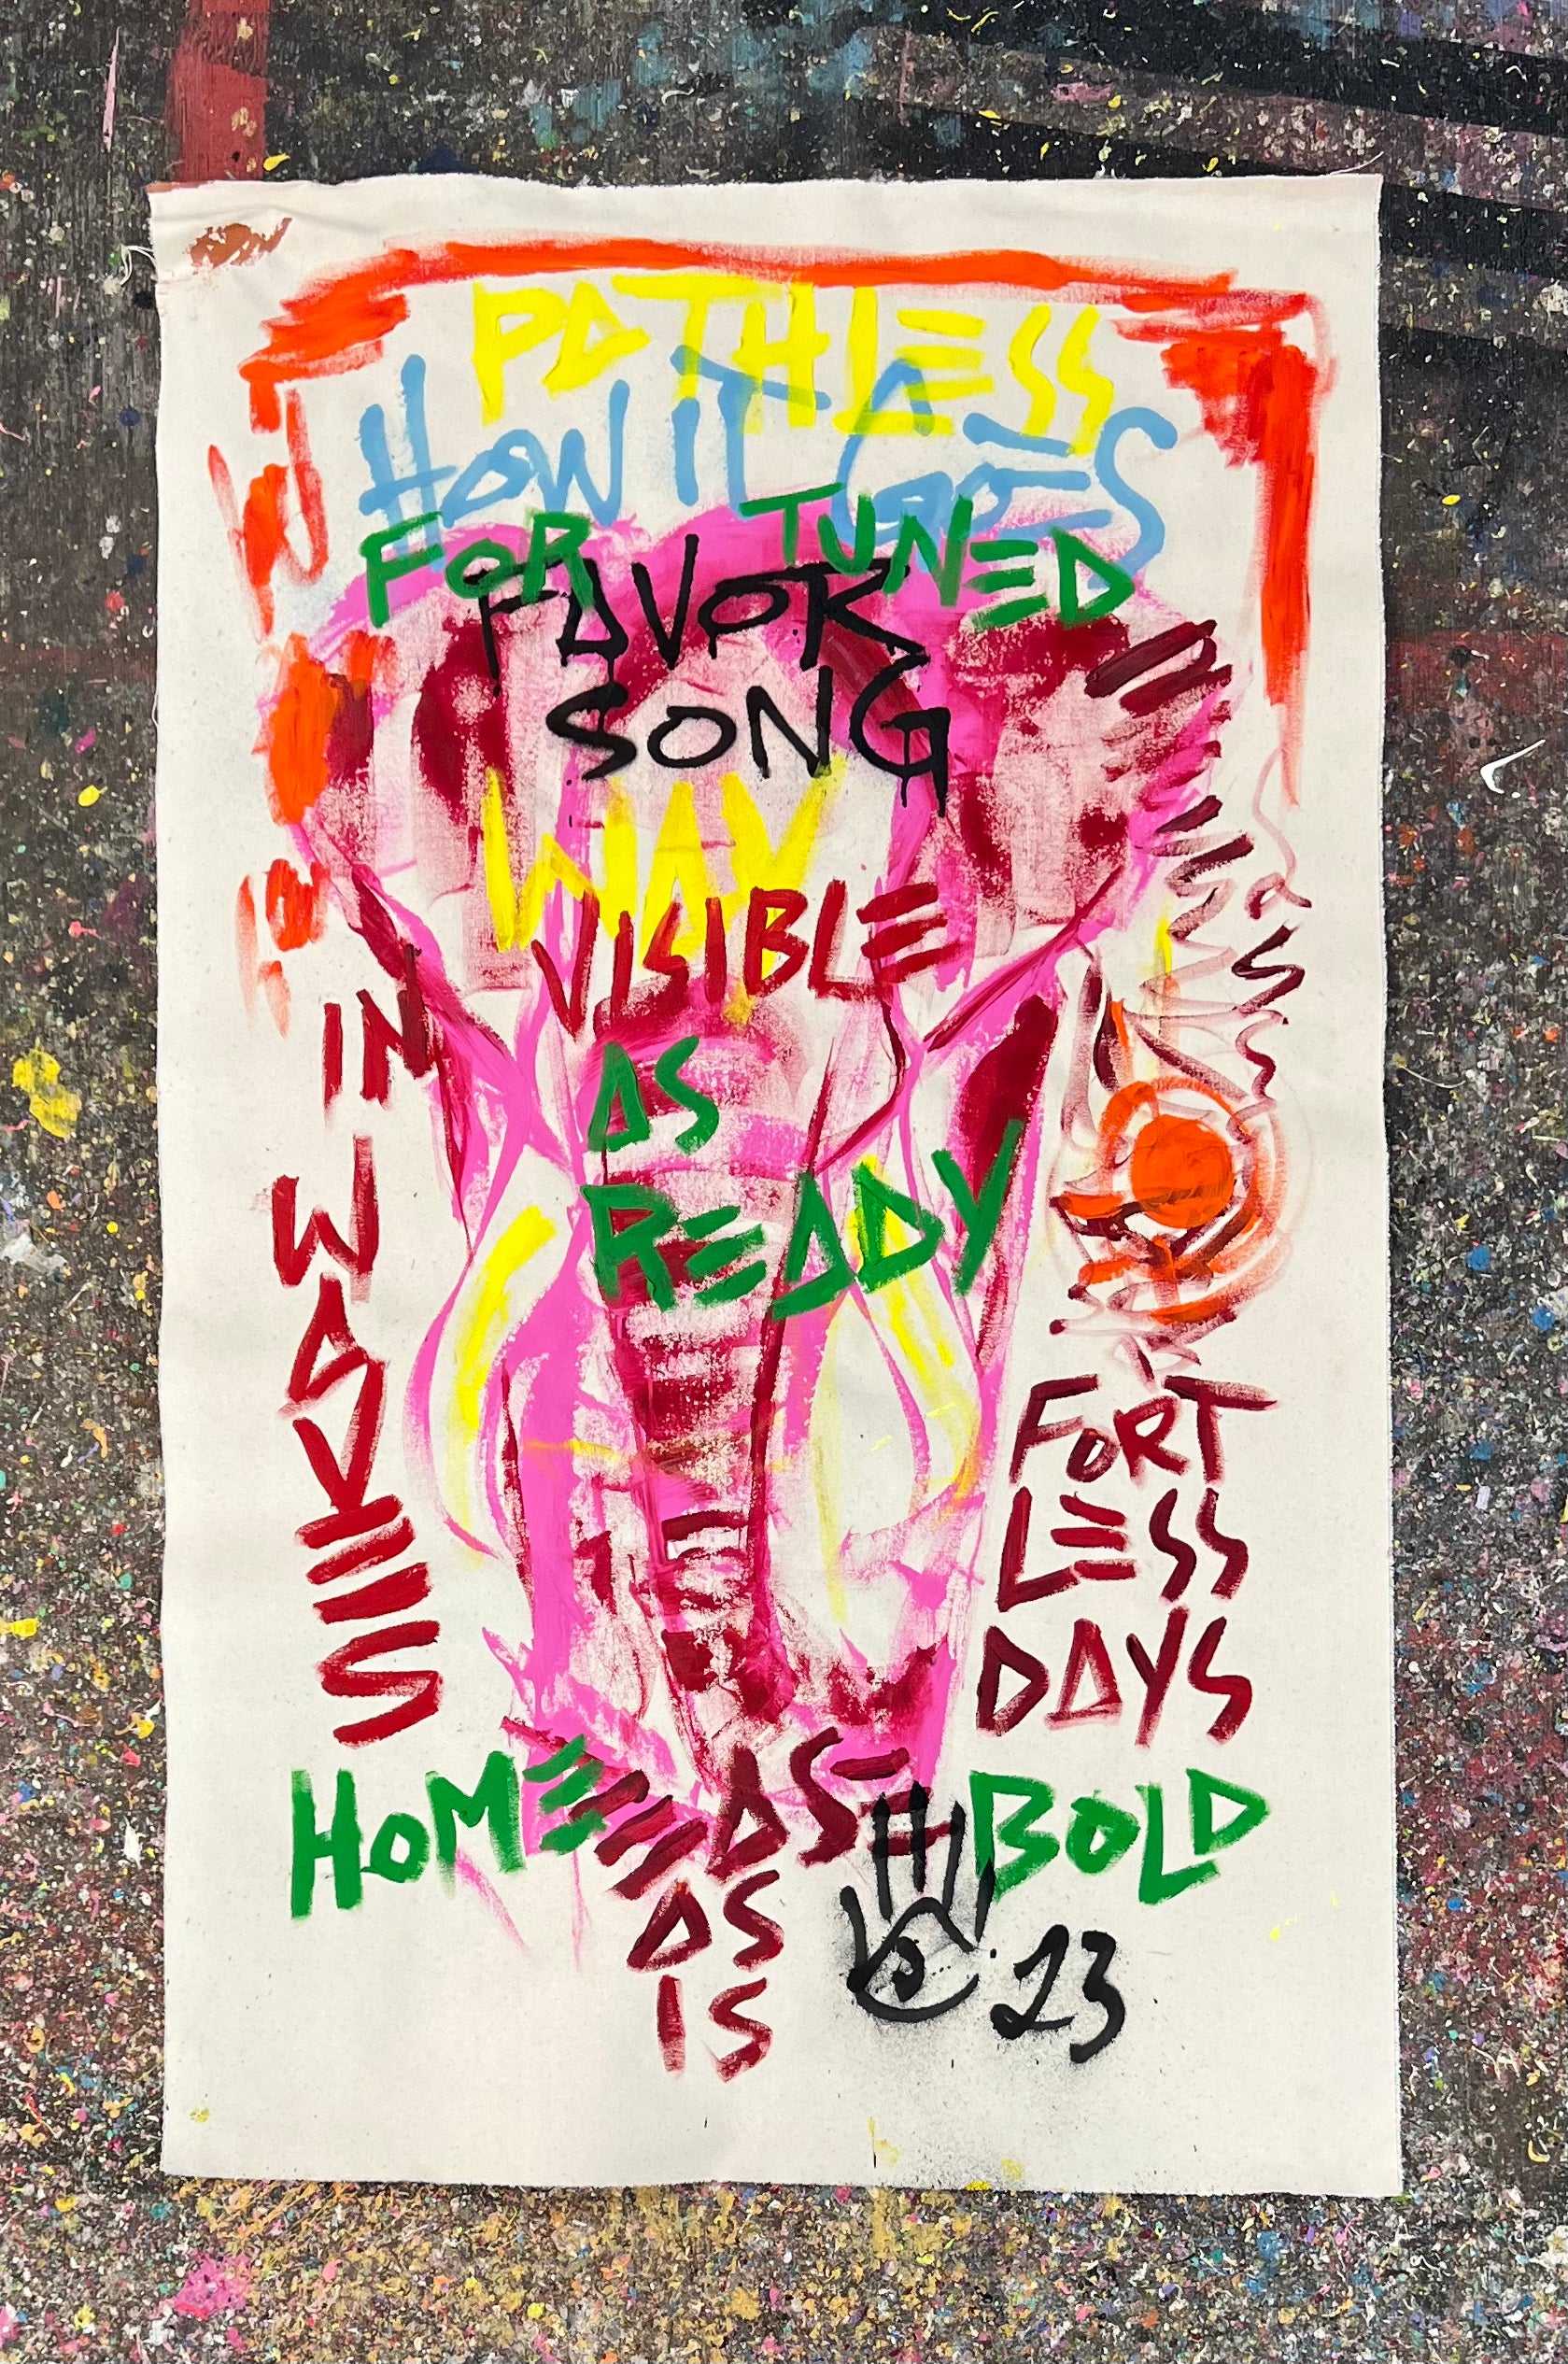 PATHLESS
HOW IT GOES
FOR TUNED
FAVOR
SONG
WAY
VISIBLE
IN
AS
READY
WAVES
FORT
LESS
DAYS
HOME AS BOLD
AS
IS
23